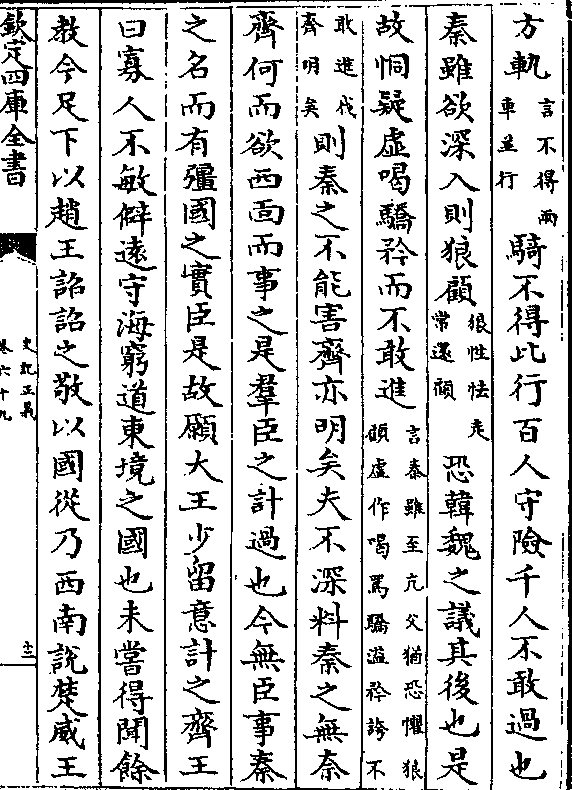 方軌言不得兩車並行騎不得比行百人守險千人不敢過也
秦雖欲深入則狼顧狼性怯走常還顧恐韓魏之議其後也是
故恫疑虛喝驕矜而不敢進言秦雖至亢父猶恐懼狼顧虛作喝罵驕溢矜誇不
敢進伐齊明矣則秦之不能害齊亦明矣夫不深料秦之無奈
齊何而欲西面而事之是羣臣之計過也今無臣事秦
之名而有彊國之實臣是故願大王少留意計之齊王
曰寡人不敏僻遠守海窮道東境之國也未嘗得聞餘
教今足下以趙王詔詔之敬以國從乃西南說楚威王
欽定四庫全書
史記正義
卷六十九
十三